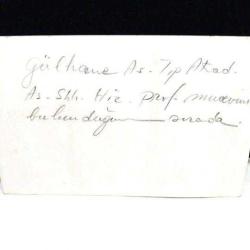 Gülhane As. Tıp Akad.
As. Shh. Hiz. prof. muavini
bulunduğum sırada.